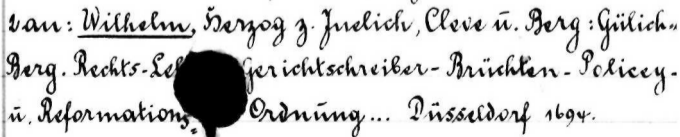 van: Wilhelm, Herzog z. Juelich, Cleve ü. Berg: Gülich-
Berg. Rechts- Gerichtschreiber-Brüchten-Policey-
ü. Reformations- Ordnüng... Düsseldorf 1694.